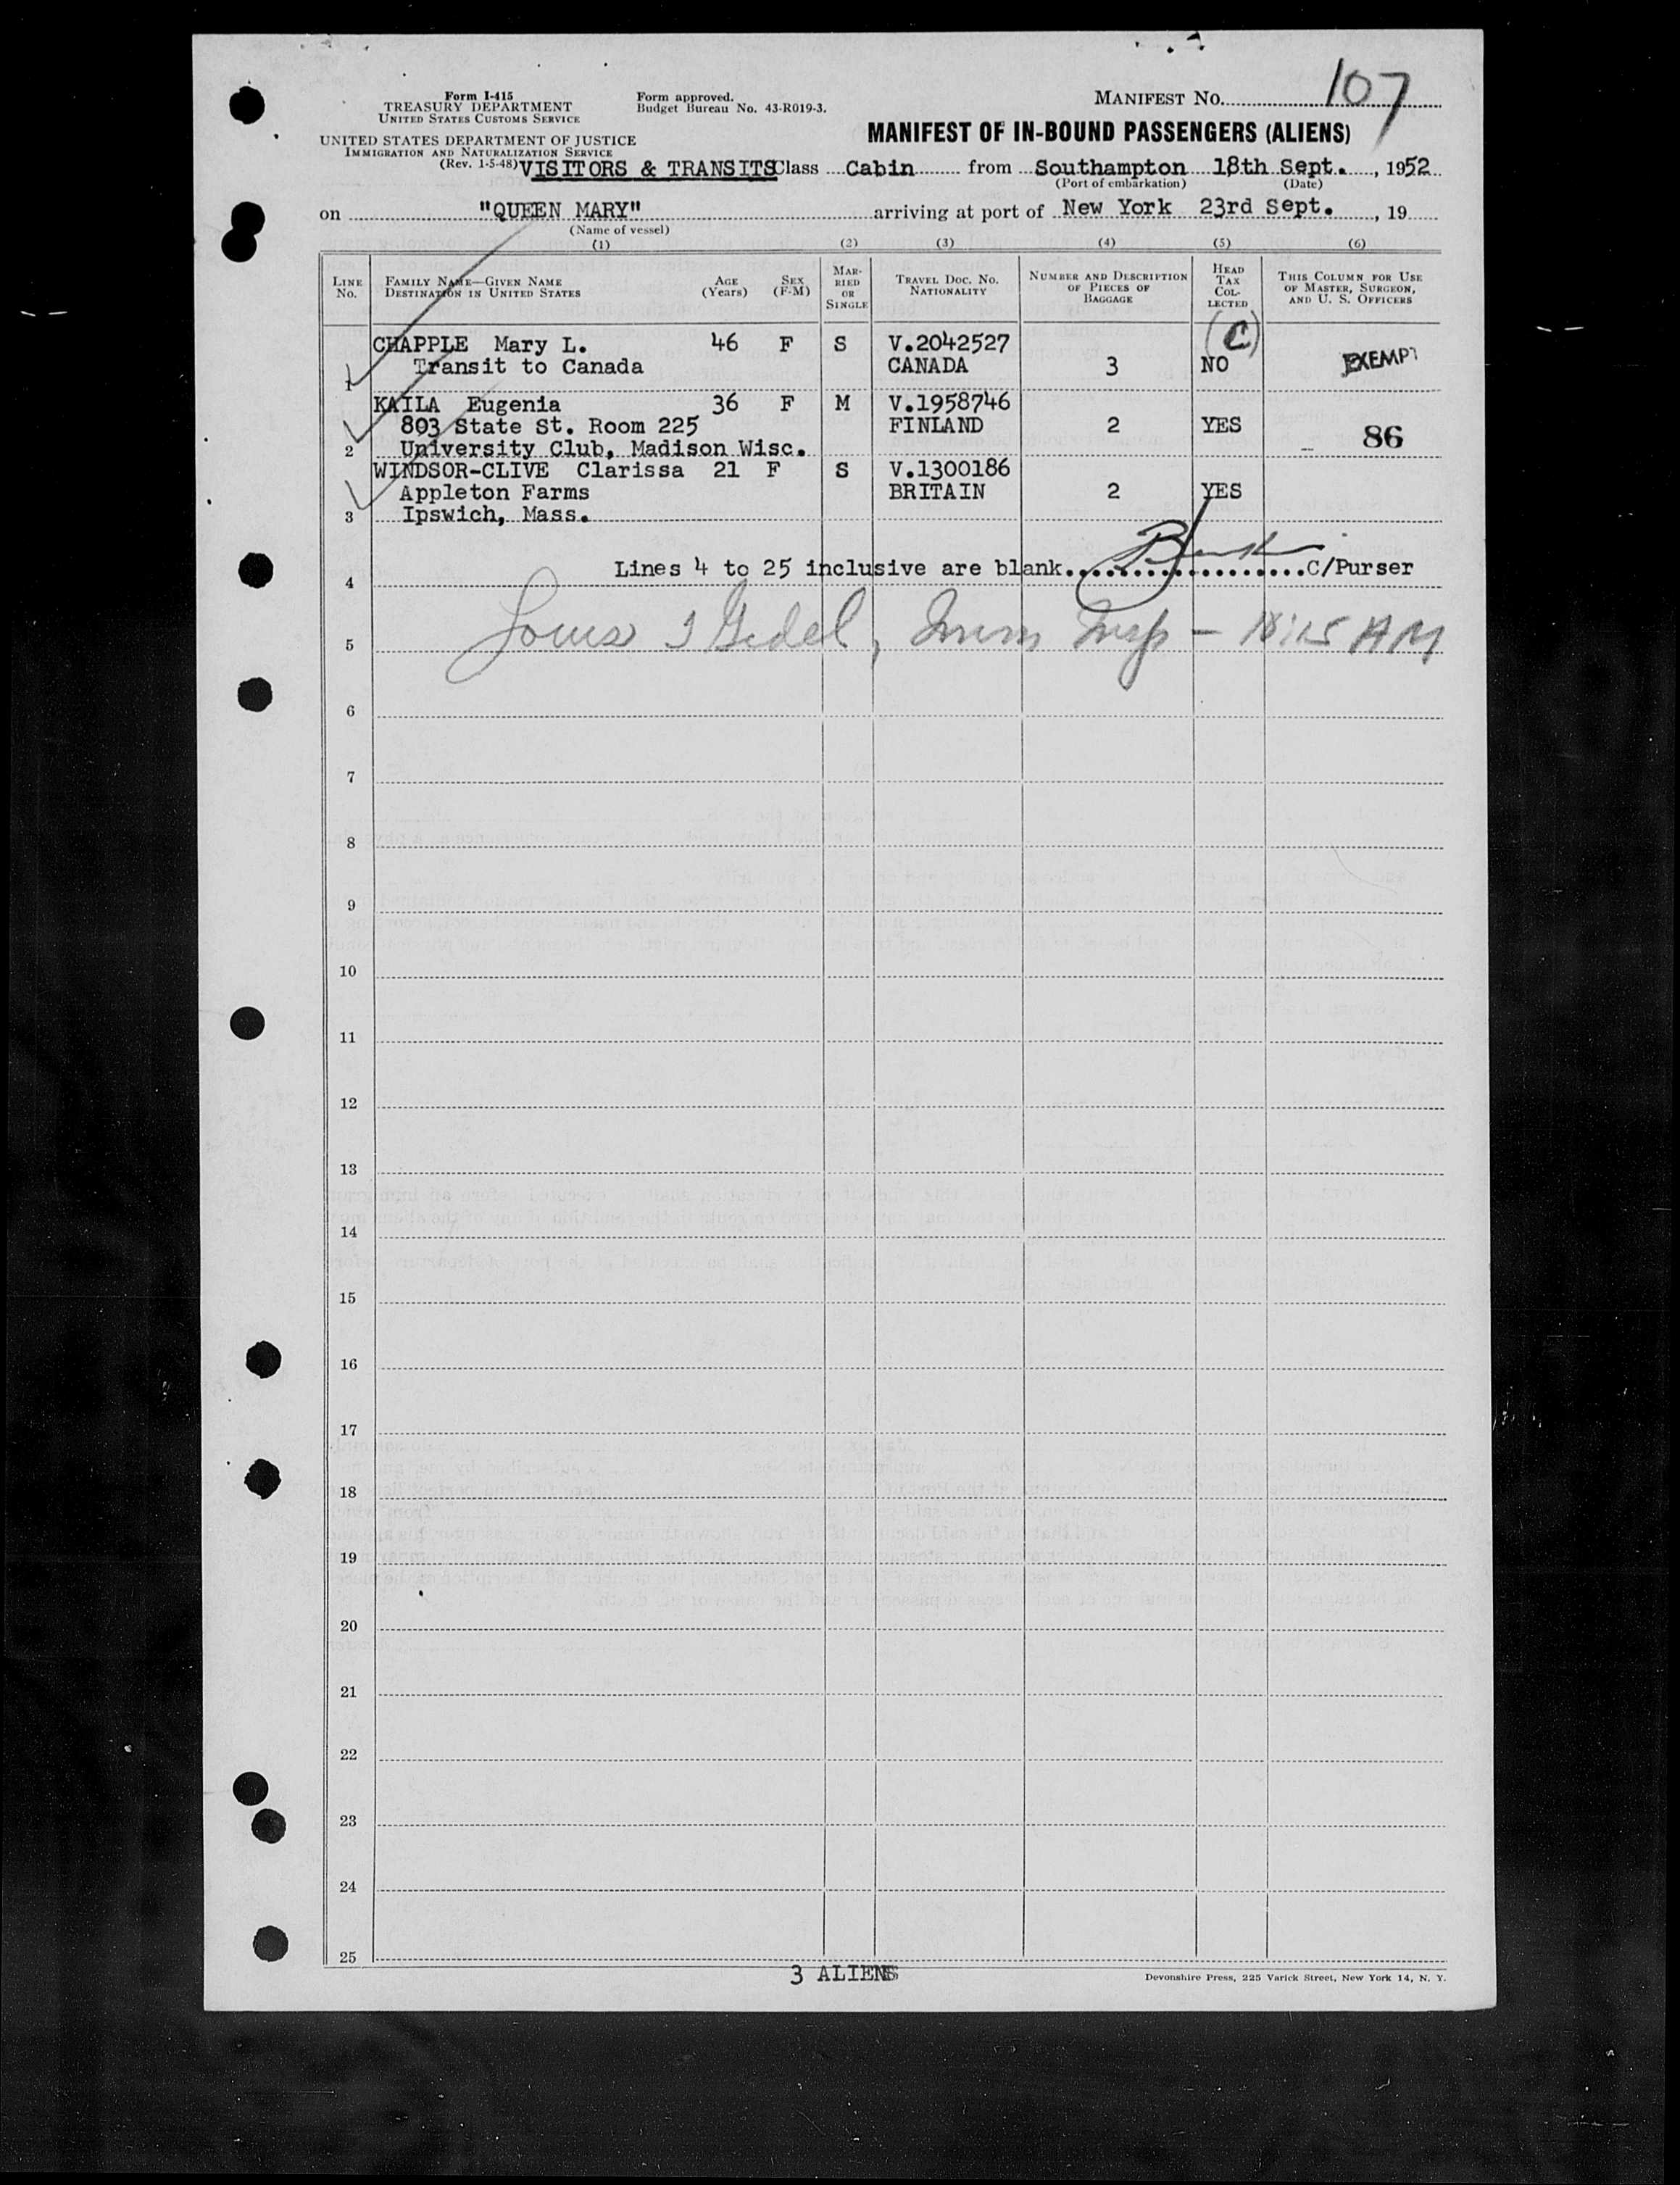 Form I-415
TREASURY DEPARTMENT
UNITED STATES CUSTOMS SERVICE
UNITED STATES DEPARTMENT OF JUSTICE
IMMIGRATION AND NATURALIZATION SERVICE
(Rev. 1-5-48)
Form approved.
Budget Bureau No. 43-R019-3.
MANIFEST No. 107
MANIFEST OF IN-BOUND PASSENGERS (ALIENS)
VISITORS & TRANSITS Class Cabin from Southampton 18th Sept., 1952
(Port of embarkation) (Date)
on "QUEEN MARY" arriving at port of New York 23rd Sept., 19
(Name of vessel)
(1) (2) (3) (4) (5) (6)
LINE No. FAMILY NAME—GIVEN NAME DESTINATION IN UNITED STATES AGE (Years) SEX (F-M) MARRIED OR SINGLE TRAVEL DOC. NO. NATIONALITY NUMBER AND DESCRIPTION OF PIECES OF BAGGAGE HEAD TAX COLLECTED THIS COLUMN FOR USE OF MASTER, SURGEON, AND U. S. OFFICERS
(C)
CHAPPLE Mary L. 46 F S V.2042527
1 Transit to Canada CANADA 3 NO EXEMPT
KAILA Eugenia 36 F M V.1958746
803 State St. Room 225 FINLAND 2 YES 86
2 University Club, Madison Wisc.
WINDSOR-CLIVE Clarissa 21 F S V.1300186
Appleton Farms BRITAIN 2 YES
3 Ipswich, Mass.
4 Lines 4 to 25 inclusive are blank...................C/Purser
5 Louis I Gedel, Imm Insp — AM
6
7
8
9
10
11
12
13
14
15
16
17
18
19
20
21
22
23
24
25
3 ALIENS
Devonshire Press, 225 Varick Street, New York 14, N. Y.